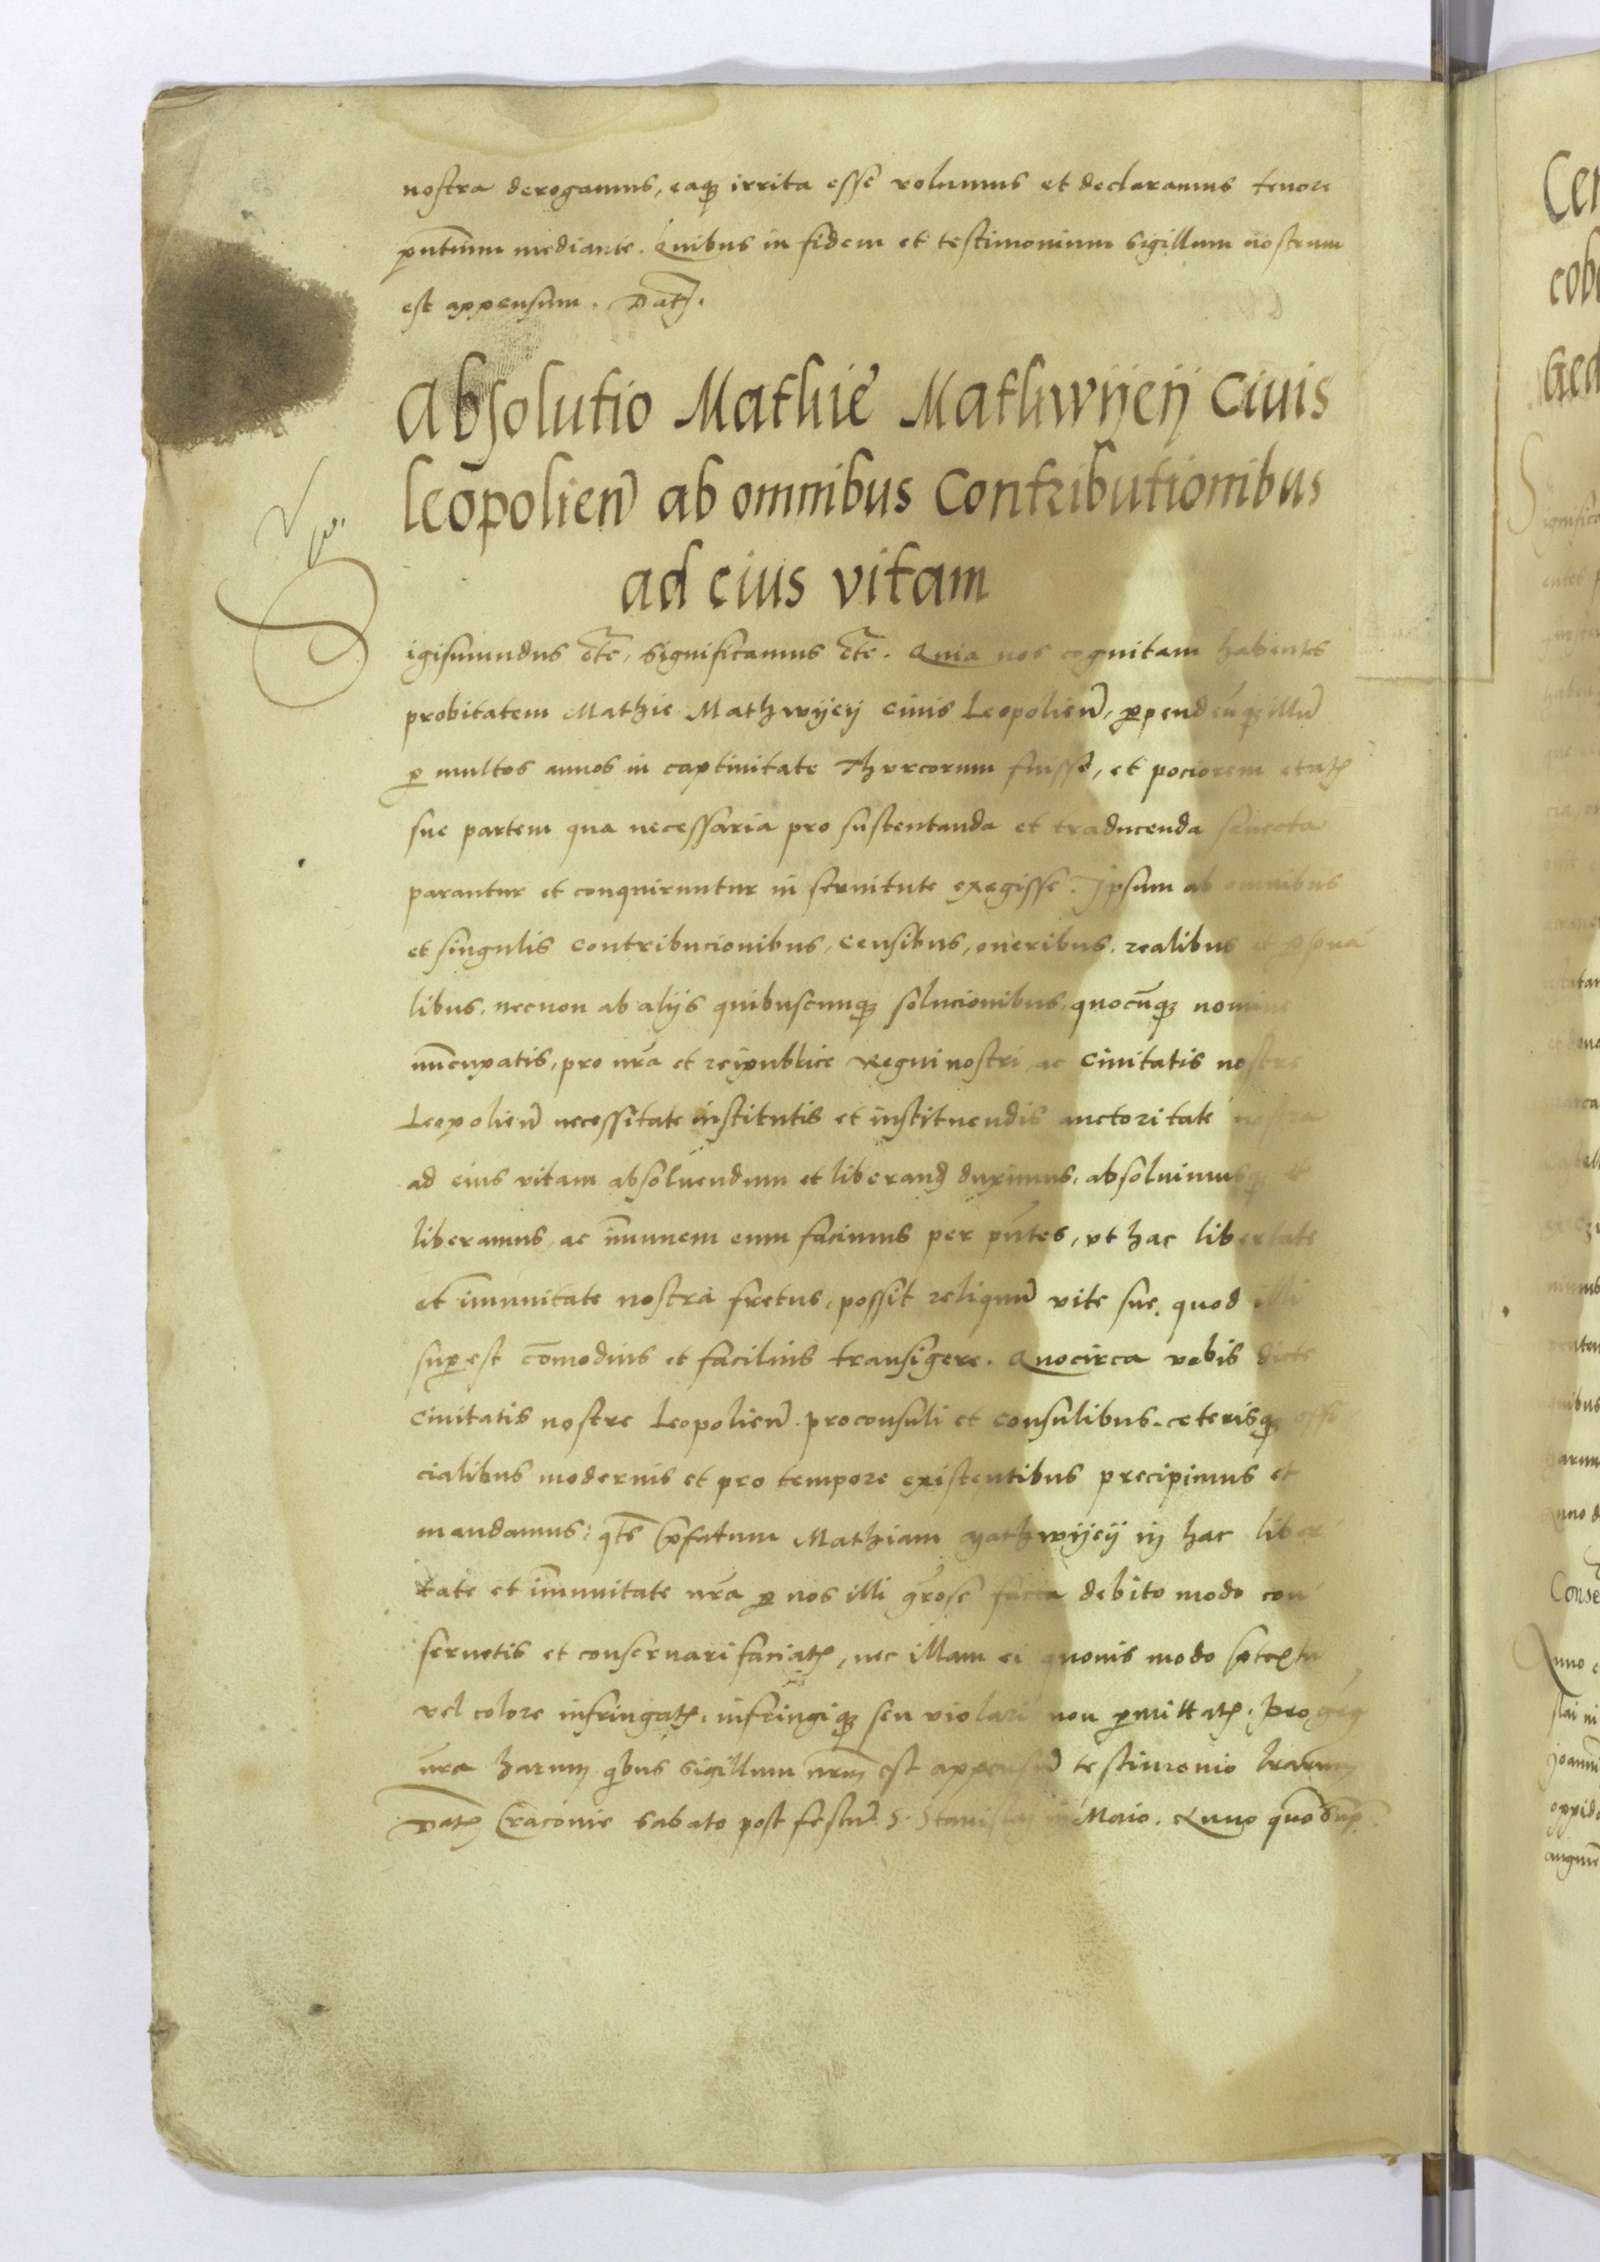 nostra derogamus, eaqꝫ irrita esse volumus et declaramus tenore
pñtium mediante. Quibus in fidem et testimonium sigillum nostrum
est appensum. Datꝫ.
Absolutio Mathie Mathwijeij Ciuis
leopolieñ ab omnibus Contributionibus
ad eius vitam
Sigismundus etc̃, significamus etc̃. Quia nos cognitam habentes
probitatem Mathie Mathwijeij ciuis Leopolieñ, ꝑpendeñqꝫ illũ
ꝑ multos annos in captiuitate Thurcorum fuisse, et pociorem etatꝫ
sue partem qua necessaria pro sustentanda et traducenda senecta
parantur et conquiruntur in seruitute exegisse. Ipsum ab omnibus
et singulis contribucionibus, censibus, oneribus, realibus et ꝑsona
libus, necnon ab alijs quibuscunqꝫ solucionibus, quocũqꝫ nomine
nũcupatis, pro nr̃a et reipublice Regni nostri ac Ciuitatis nostre
Leopolieñ necessitate institutis et instituendis auctoritate nostra
ad eius vitam absoluendum et liberandꝫ duximus, absoluimusqꝫ et
liberamus, ac im̃unem eum facimus per pñtes, vt hac libertate
et im̃unitate nostra fretus, possit reliquũ vite sue, quod illi
suꝑest com̃odius et facilius transigere. Quocirca vobis dicte
Ciuitatis nostre Leopolieñ proconsuli et consulibus, ceterisqꝫ offi
cialibus modernis et pro tempore existentibus precipimus et
mandamus: qt̃s p̃fatum Mathiam Mathwijeij in hac liber
tate et im̃unitate nr̃a ꝑ nos illi gr̃ose facta debito modo con
seruetis et conseruari faciatꝫ, nec illam ei quouis modo p̃textu
vel colore infringatꝫ, infringiqꝫ seu violari non ꝑmittatꝫ. Pro
nr̃a harum qibus sigillum nr̃m est appensũ testimonio lr̃arum
Datꝫ Cracouie sabato post festũ S. Stanislai in Maio. Anno quo supꝫ.